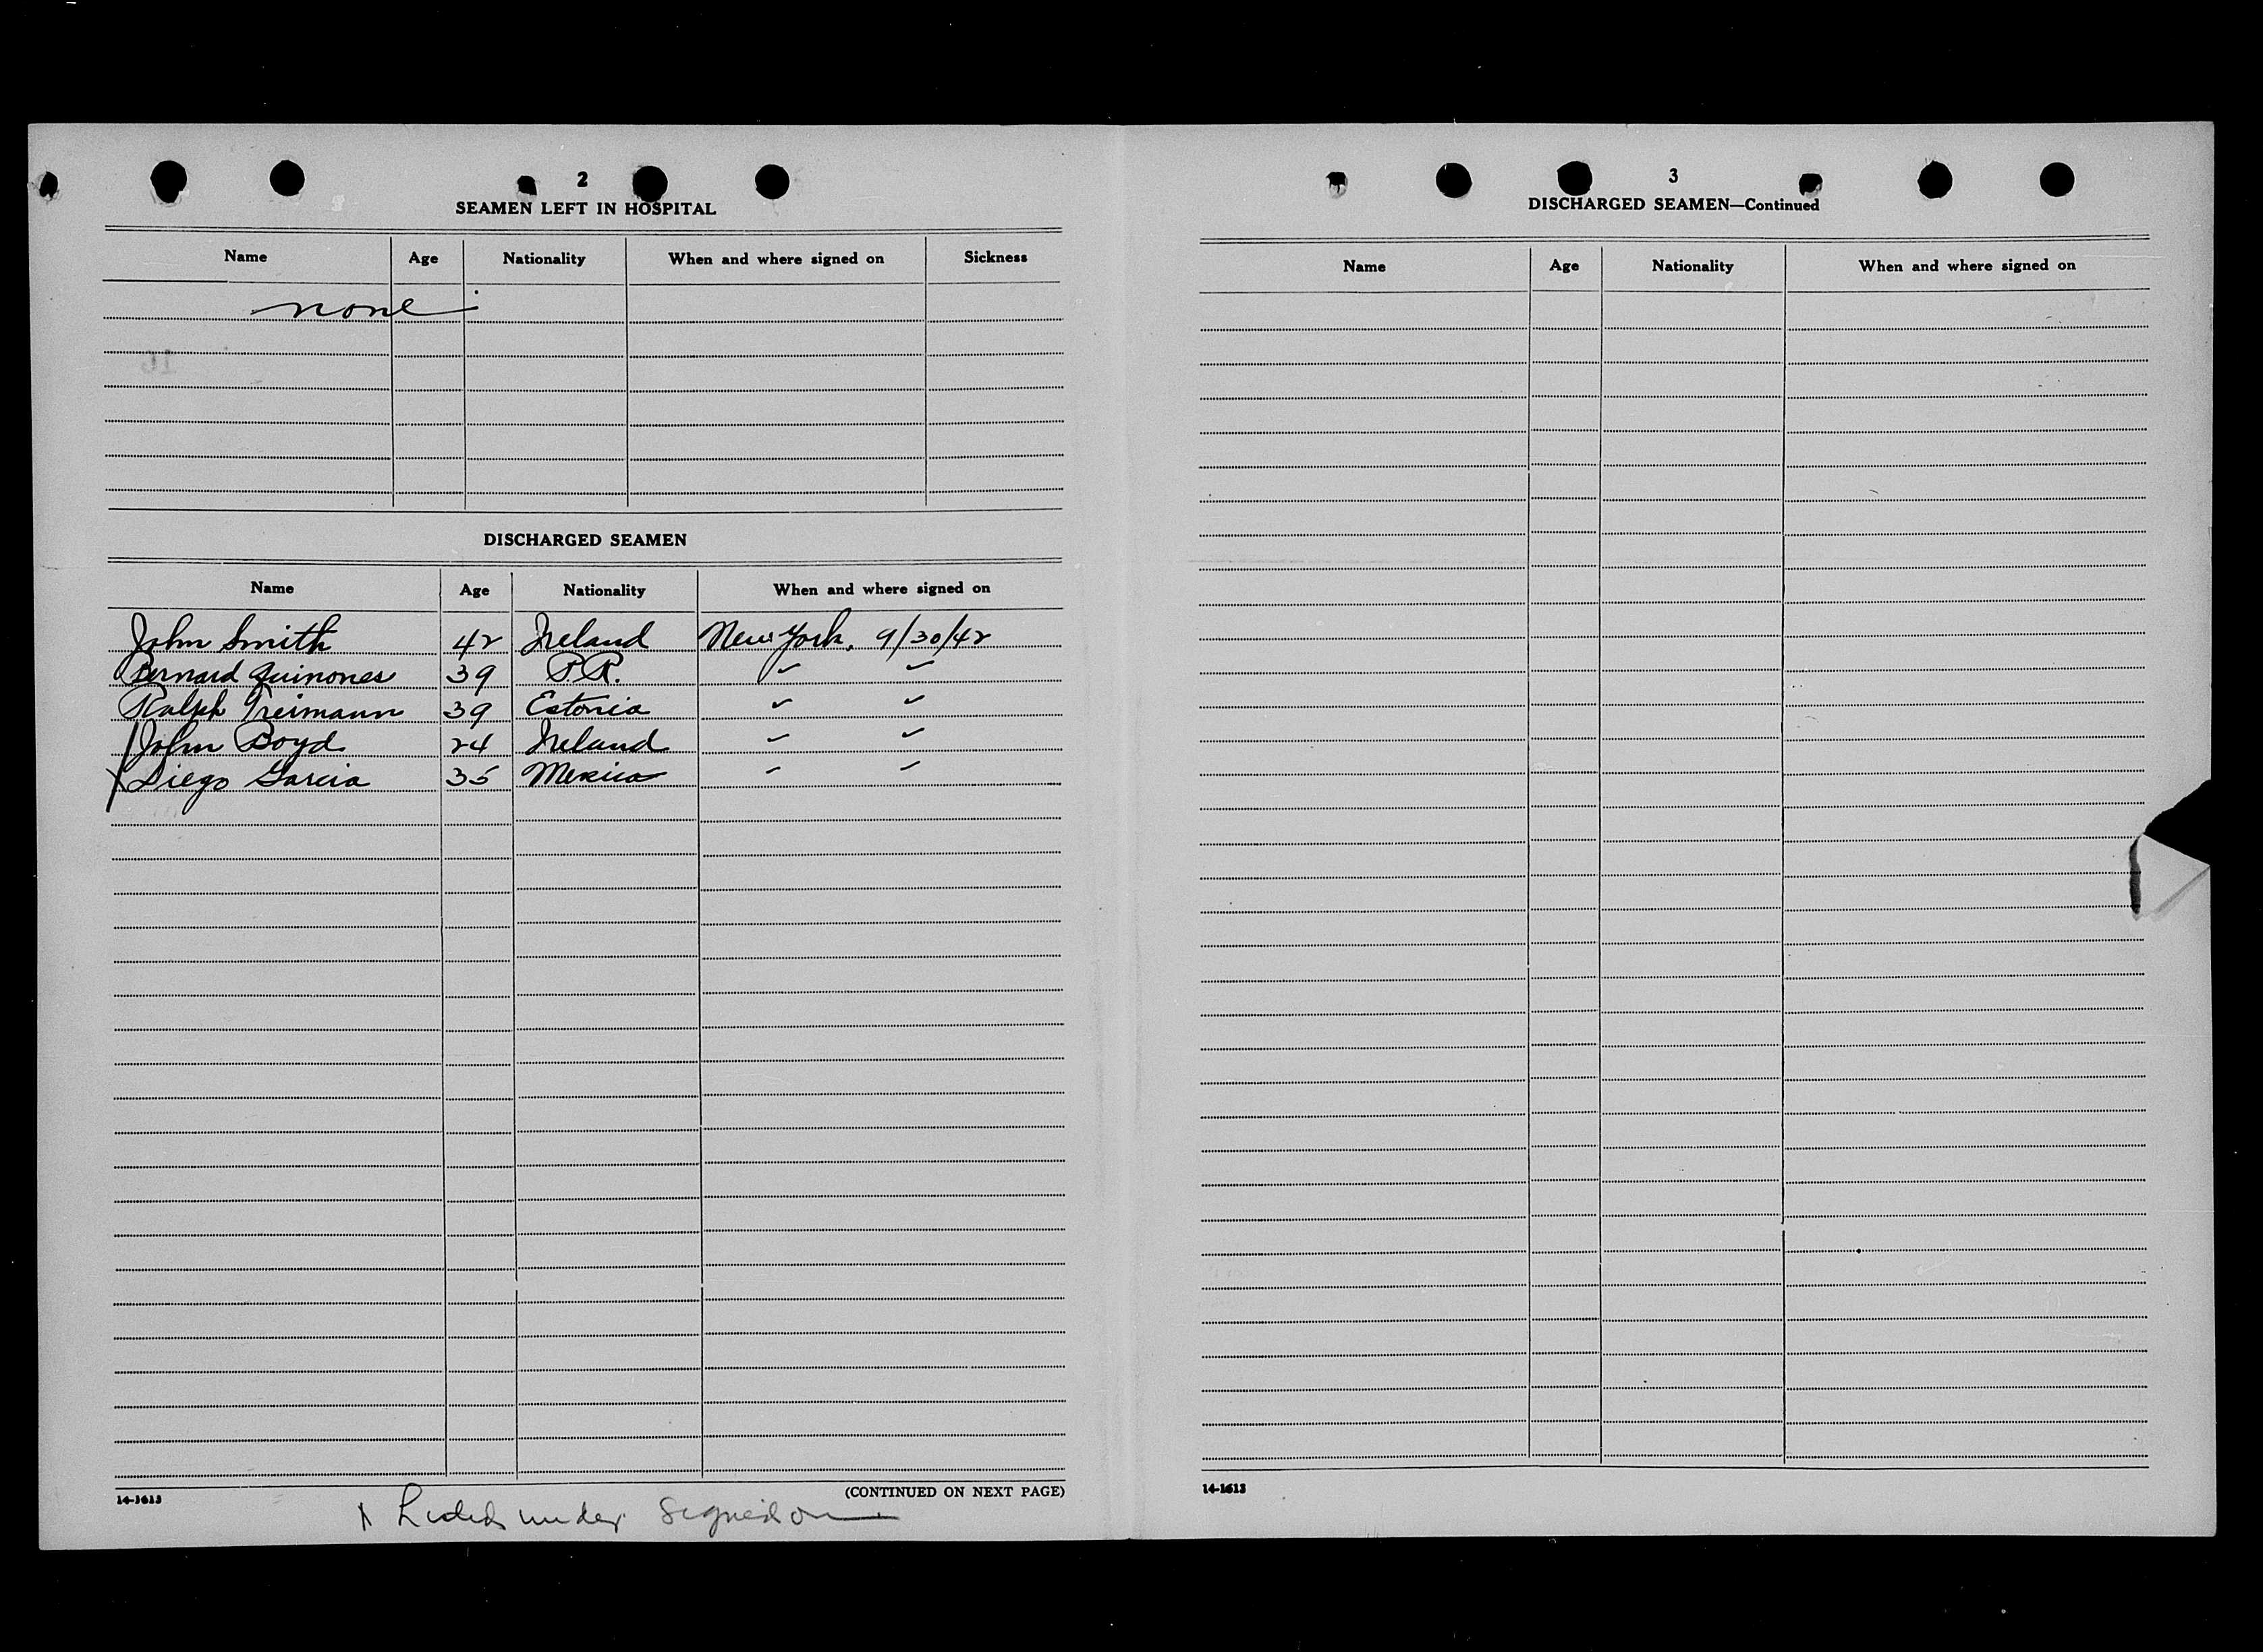 2
SEAMEN LEFT IN HOSPITAL
Name Age Nationality When and where signed on Sickness
none
DISCHARGED SEAMEN
Name Age Nationality When and where signed on
John Smith 42 Ireland New York, 9/30/42
Bernard Quinones 39 P.R. " "
Ralph Treimann 39 Estonia " "
John Boyd 24 Ireland " "
X Diego Garcia 35 Mexico " "
14-1613
(CONTINUED ON NEXT PAGE)
X Listed under signed on
3
DISCHARGED SEAMEN—Continued
Name Age Nationality When and where signed on
14-1613